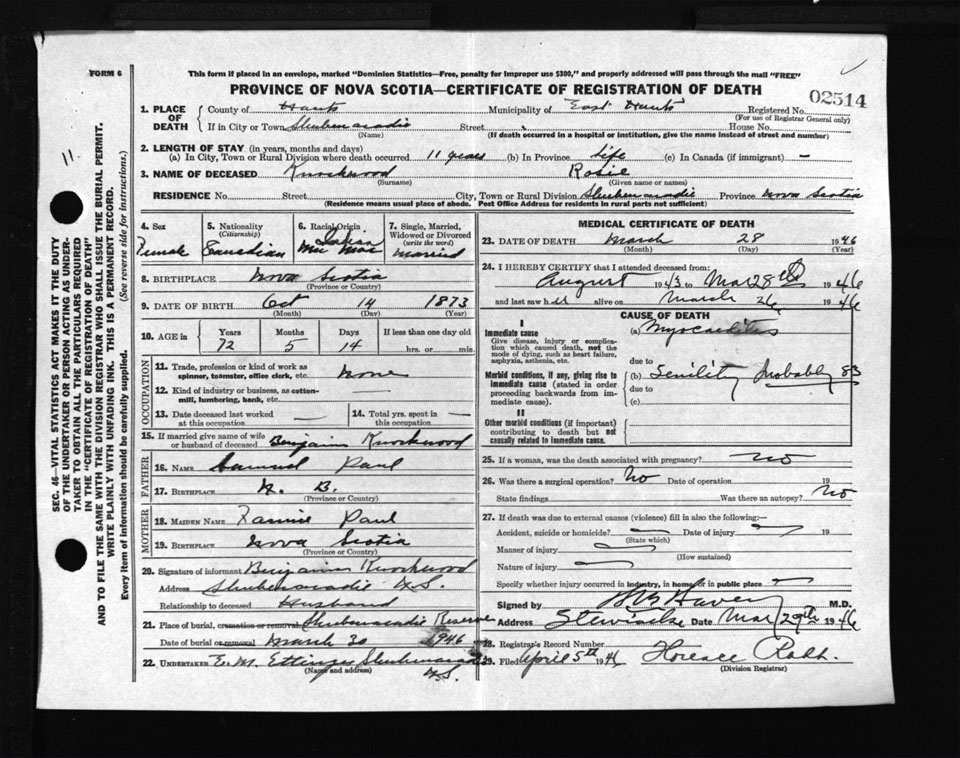 FORM 6
This form if placed in an envelope, marked "Dominion Statistics—Free, penalty for improper use $300," and properly addressed will pass through the mail "FREE"
PROVINCE OF NOVA SCOTIA—CERTIFICATE OF REGISTRATION OF DEATH
02514
1. PLACE OF DEATH
County of Hants Municipality of East Hants Registered No.
(For use of Registrar General only)
If in City or Town Shubenacadie Street House No.
(Name) (If death occurred in a hospital or institution, give the name instead of street and number)
2. LENGTH OF STAY (in years, months and days)
(a) In City, Town or Rural Division where death occurred 11 years (b) In Province Life (c) In Canada (if immigrant) —
3. NAME OF DECEASED Knockwood Rosie
(Surname) (Given name or names)
RESIDENCE No. Street City, Town or Rural Division Shubenacadie Province Nova Scotia
(Residence means usual place of abode. Post Office Address for residents in rural parts not sufficient)
4. Sex
Female
5. Nationality
(Citizenship)
Canadian
6. Racial Origin
Indian
Mic Mac
7. Single, Married, Widowed or Divorced
(write the word)
Married
8. BIRTHPLACE Nova Scotia
(Province or Country)
9. DATE OF BIRTH Oct 14 1873
(Month) (Day) (Year)
10. AGE in
Years Months Days If less than one day old
72 5 14 hrs. or min.
OCCUPATION
11. Trade, profession or kind of work as spinner, teamster, office clerk, etc. None
12. Kind of industry or business, as cotton-mill, lumbering, bank, etc. —
13. Date deceased last worked at this occupation —
14. Total yrs. spent in this occupation —
15. If married give name of wife or husband of deceased Benjamin Knockwood
FATHER
16. NAME Samuel Paul
17. BIRTHPLACE N. B.
(Province or Country)
MOTHER
18. MAIDEN NAME Fannie Paul
19. BIRTHPLACE Nova Scotia
(Province or Country)
20. Signature of informant Benjamin Knockwood
Address Shubenacadie N.S.
Relationship to deceased Husband
21. Place of burial, cremation or removal Shubenacadie Reserve
Date of burial or removal March 30 1946
22. UNDERTAKER E. M. Ettinger Shubenacadie
(Name and address) N.S.
MEDICAL CERTIFICATE OF DEATH
23. DATE OF DEATH March 28 1946
(Month) (Day) (Year)
24. I HEREBY CERTIFY that I attended deceased from:
August 1943 to Mar 28th 1946
and last saw her alive on March 26 1946
CAUSE OF DEATH
I
Immediate cause (a) Myocarditis
Give disease, injury or complication which caused death, not the mode of dying, such as heart failure, asphyxia, asthenia, etc.
due to
Morbid conditions, if any, giving rise to immediate cause (stated in order proceeding backwards from immediate cause).
(b) Senility Probably 83
due to
(c)
II
Other morbid conditions (if important) contributing to death but not causally related to immediate cause.
25. If a woman, was the death associated with pregnancy? No
26. Was there a surgical operation? No Date of operation 19
State findings Was there an autopsy? No
27. If death was due to external causes (violence) fill in also the following:—
Accident, suicide or homicide? Date of injury 19
(State which)
Manner of injury
(How sustained)
Nature of injury
Specify whether injury occurred in industry, in home or in public place
Signed by M.D.
Address Stewiacke Date Mar 29th 1946
28. Registrar's Record Number
29. Filed April 5th 1946 Florence
(Division Registrar)
11
SEC. 46—VITAL STATISTICS ACT MAKES IT THE DUTY
OF THE UNDERTAKER OR PERSON ACTING AS UNDER-
TAKER TO OBTAIN ALL THE PARTICULARS REQUIRED
IN THE "CERTIFICATE OF REGISTRATION OF DEATH"
AND TO FILE THE SAME WITH THE DIVISION REGISTRAR WHO SHALL ISSUE THE BURIAL PERMIT.
WRITE PLAINLY WITH UNFADING INK. THIS IS A PERMANENT RECORD.
Every item of information should be carefully supplied. (See reverse side for instructions.)